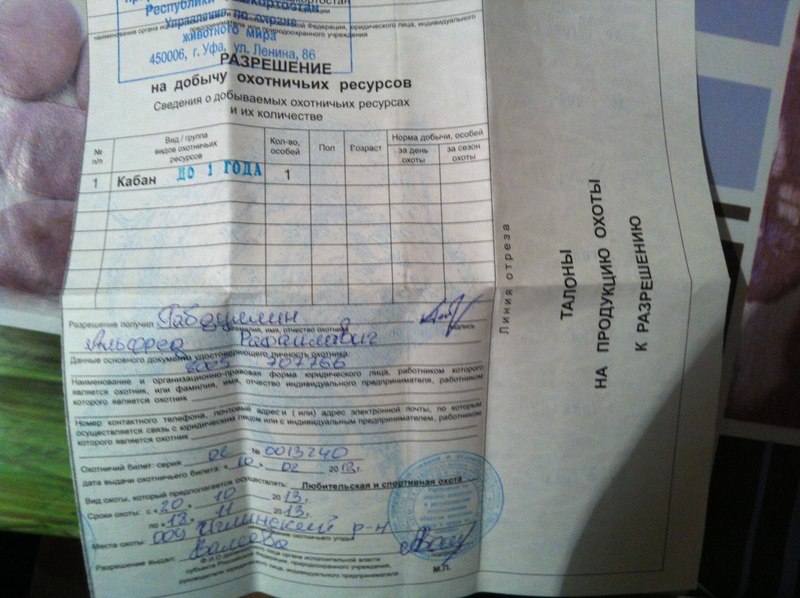 Республики Башкортостан
Управление по охране
животного мира
450006, г. Уфа, ул. Ленина, 86
РАЗРЕШЕНИЕ
на добычу охотничьих ресурсов
Сведения о добываемых охотничьих ресурсах
и их количестве
№ п/п
Вид / группа видов охотничьих ресурсов
Кол-во, особей
Пол
Возраст
Норма добычи, особей
за день охоты
за сезон охоты
1 Кабан ДО 1 ГОДА 1
Разрешение получил Габдуллин
фамилия, имя, отчество охотника
подпись
Альфред Рафаилович
Данные основного документа удостоверяющего личность охотника:
Наименование и организационно-правовая форма юридического лица, работником которого
является охотник, или фамилия, имя, отчество индивидуального предпринимателя, работником
которого является охотник
Номер контактного телефона, почтовый адрес и ( или) адрес электронной почты, по которым
осуществляется связь с юридическим лицом или с индивидуальным предпринимателем, работником
которого является охотник
Охотничий билет: серия 02 № 0013240
дата выдачи охотничьего билета: « 10 » 02 2012г.
Вид охоты, который предполагается осуществлять Любительская и спортивная охота
Сроки охоты: с « 20 » 10 2013г.
по « 12 » 11 2013г.
Места охоты: 009 Иглинский р-н
охотничьего угодья
Разрешение выдал:
М.П.
Линия отреза
ТАЛОНЫ
НА ПРОДУКЦИЮ ОХОТЫ
К РАЗРЕШЕНИЮ